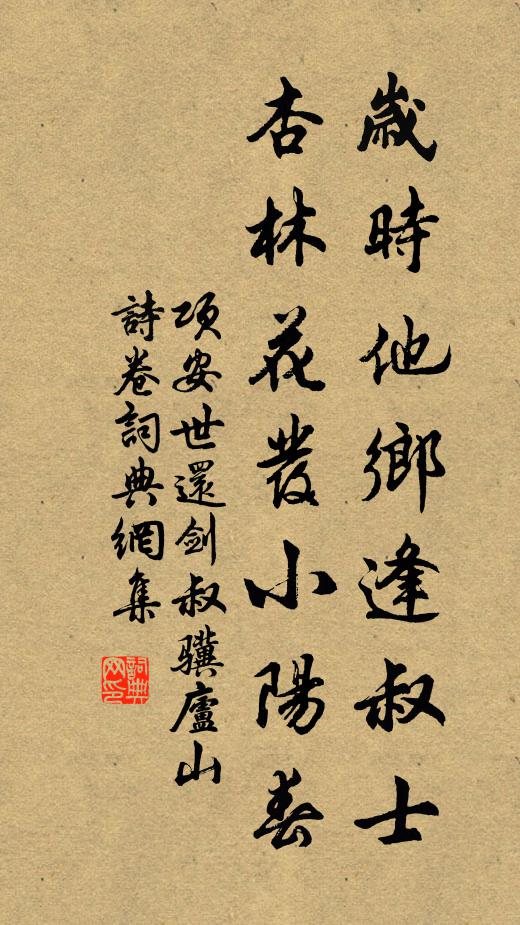 歲時他鄉逢叔士
杏林花發小陽春
項安世還劍叔驥廬山
詩卷詞典網集
詞典网印